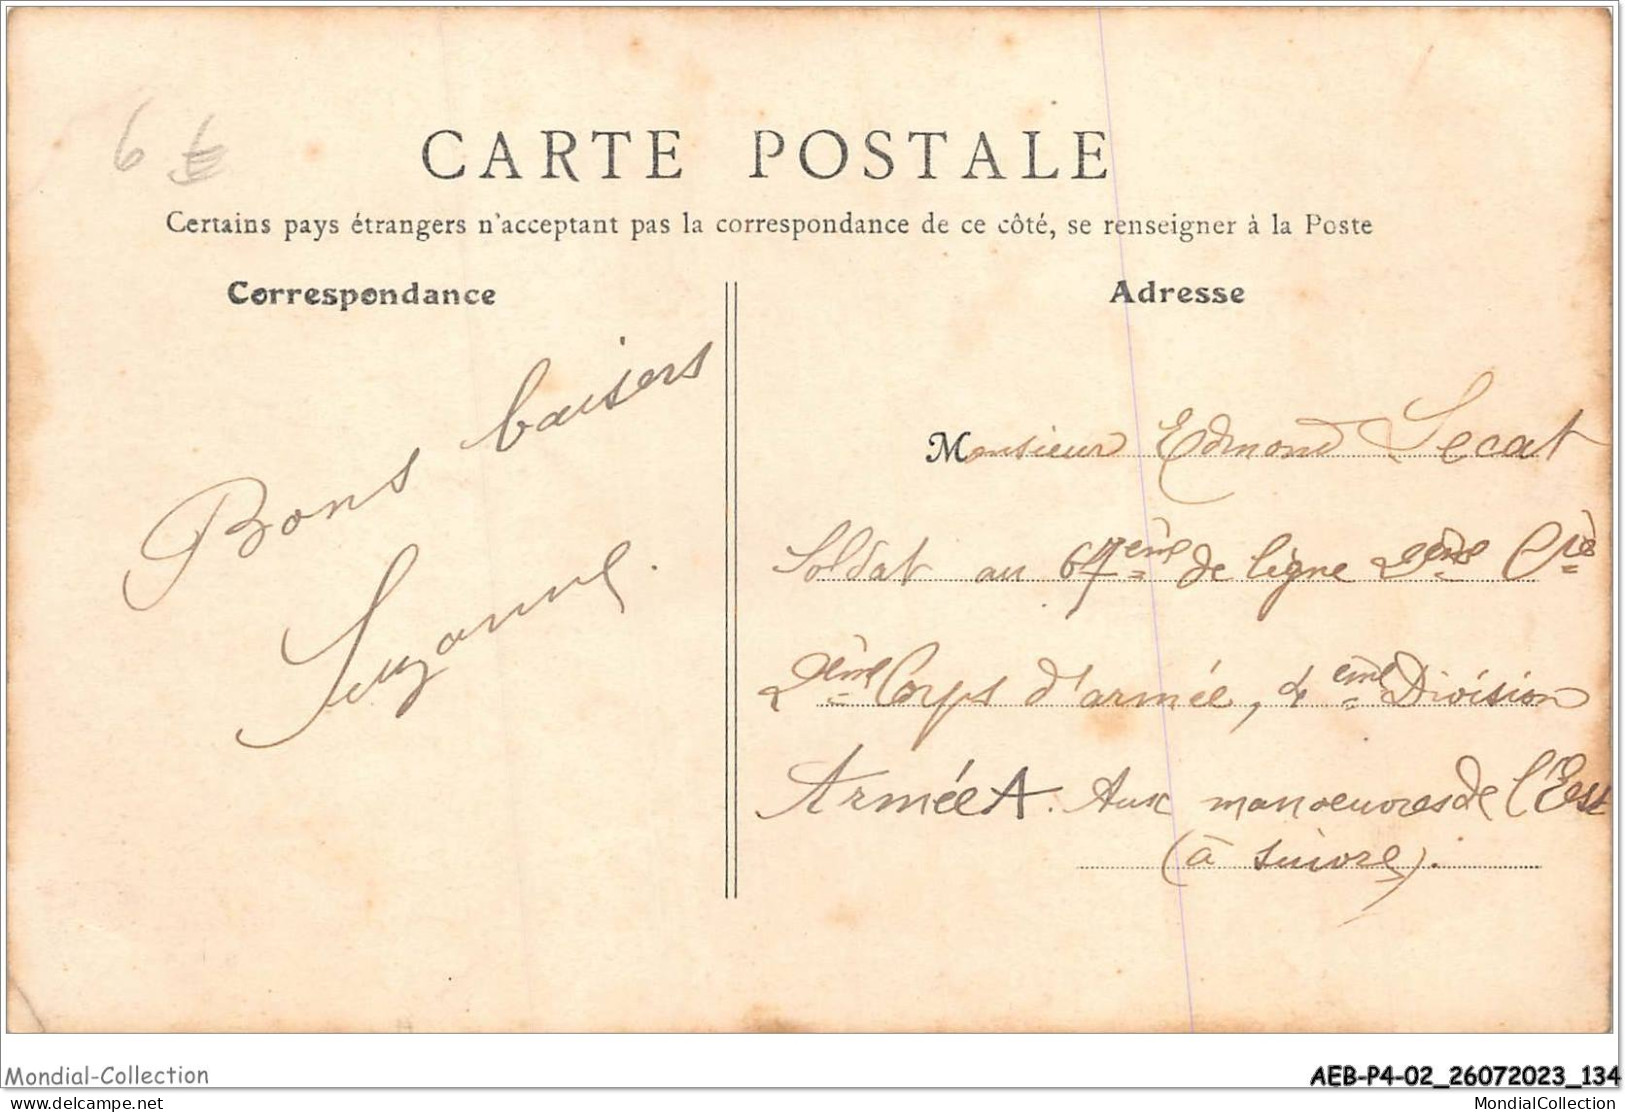 6 €
CARTE POSTALE
Certains pays étrangers n'acceptant pas la correspondance de ce côté, se renseigner à la Poste
Correspondance
Bons baisers
Suzanne.
Adresse
Monsieur Edmond Lecat
Soldat au 67ème de ligne 2ème Cie
2ème Corps d'armée, 4ème Division
Armée A. Aux manoeuvres de l'Est
(à suivre).
Mondial-Collection
AEB-P4-02_26072023_134
delcampe.net
MondialCollection